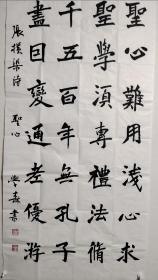 聖心難用淺心求
聖學須專禮法脩
千五百年無孔子
盡因變通老優游
張橫渠詩 聖心 書